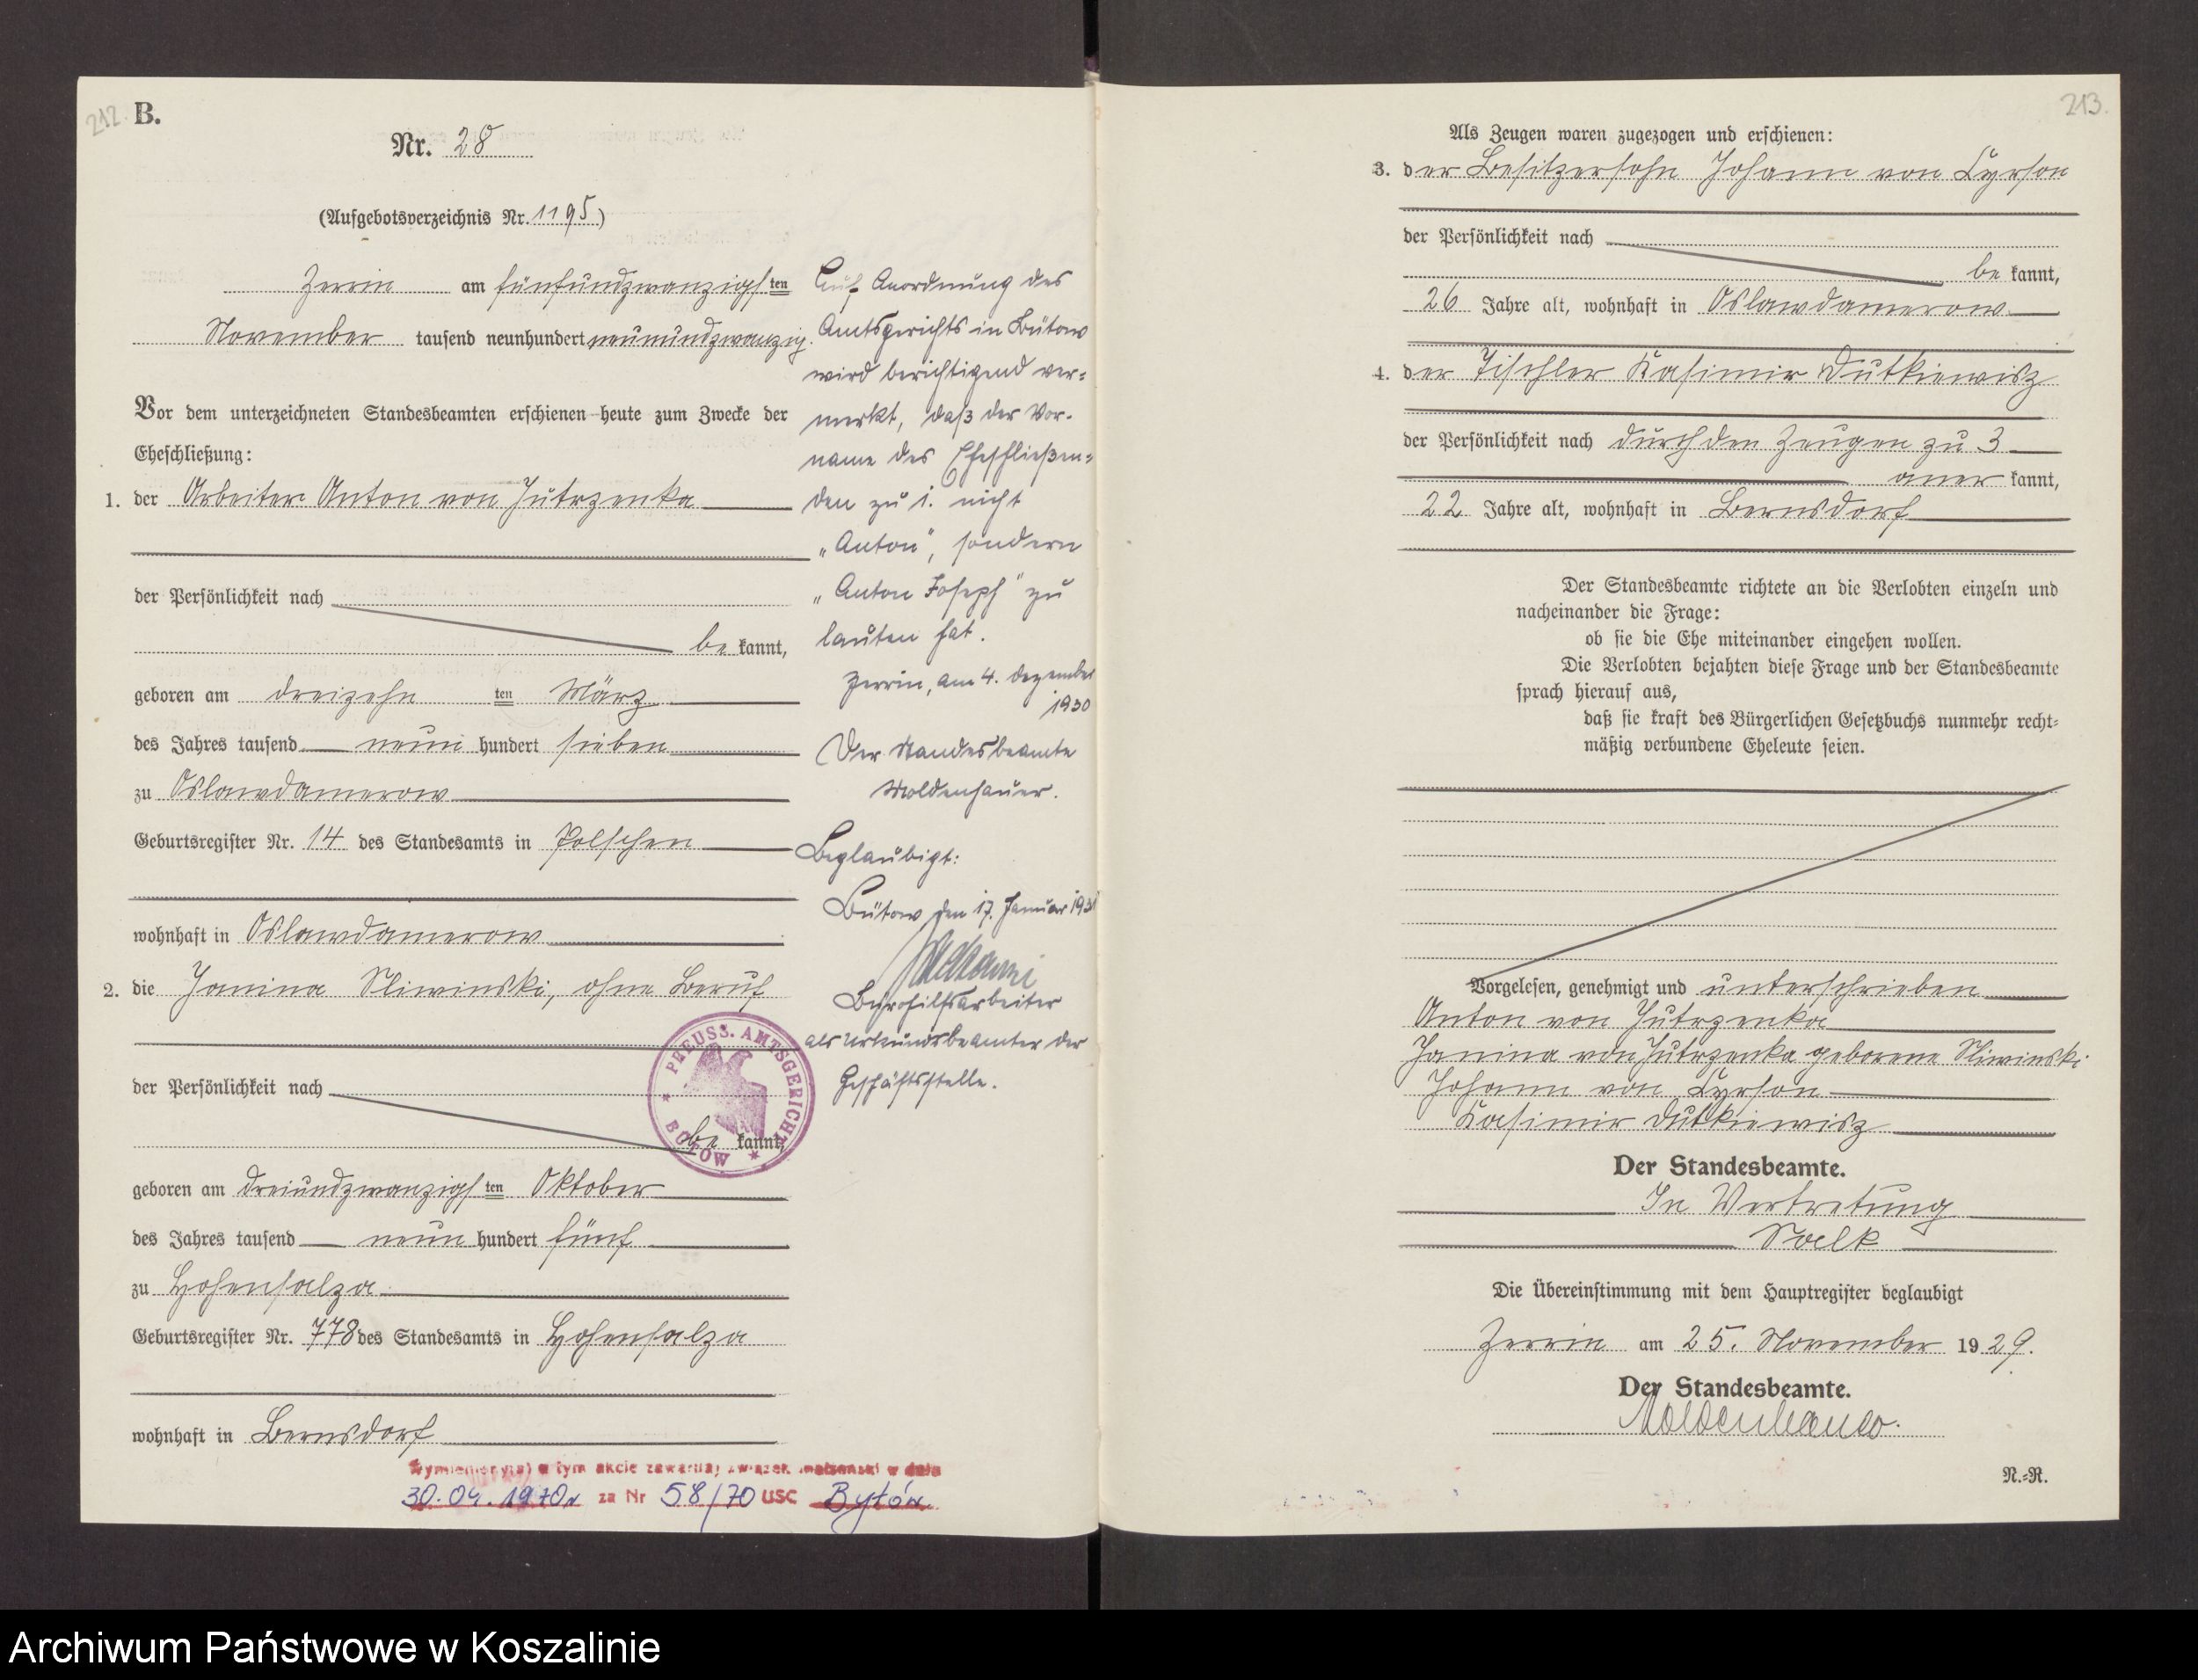 212
B.
Nr. 28
(Aufgebotsverzeichnis Nr. 1195)
Zerrin am fünfundzwanzigsten
November tausend neunhundert neunundzwanzig.
Vor dem unterzeichneten Standesbeamten erschienen heute zum Zwecke der
Eheschließung:
1. der Arbeiter Anton von Jutrzenka
der Persönlichkeit nach
be kannt,
geboren am dreizehn ten März
des Jahres tausend neun hundert sieben
zu Oslawdamerow
Geburtsregister Nr. 14 des Standesamts in Polschen
wohnhaft in Oslawdamerow
2. die Janina Sliwinski, ohne Beruf
der Persönlichkeit nach
be kannt,
geboren am dreiundzwanzigsten Oktober
des Jahres tausend neun hundert fünf
zu Hohensalza
Geburtsregister Nr. 778 des Standesamts in Hohensalza
wohnhaft in Bernsdorf
Auf Anordnung des
Amtsgerichts in Bütow
wird berichtigend ver-
merkt, daß der Vor-
name des Eheschließen-
den zu 1. nicht
„Anton", sondern
„Anton Joseph" zu
lauten hat.
Zerrin, am 4. Dezember
1930
Der Standesbeamte
Moldenhauer.
Beglaubigt:
Bütow den 17. Januar 1931
Bürohilfsarbeiter
als Urkundsbeamter der
Geschäftsstelle.
PREUSS. AMTSGERICHT
* BÜTOW *
w tym akcie zawarł(a) związek małżeński w dniu
30.04.1970r za Nr 58/70 USC Bytów
213.
Als Zeugen waren zugezogen und erschienen:
3. der Besitzersohn Johann von Cyrson
der Persönlichkeit nach
be kannt,
26 Jahre alt, wohnhaft in Oslawdamerow
4. der Tischler Kasimir Dutkiewisz
der Persönlichkeit nach durch den Zeugen zu 3
aner kannt,
22 Jahre alt, wohnhaft in Bernsdorf
Der Standesbeamte richtete an die Verlobten einzeln und
nacheinander die Frage:
ob sie die Ehe miteinander eingehen wollen.
Die Verlobten bejahten diese Frage und der Standesbeamte
sprach hierauf aus,
daß sie kraft des Bürgerlichen Gesetzbuchs nunmehr recht-
mäßig verbundene Eheleute seien.
Vorgelesen, genehmigt und unterschrieben
Anton von Jutrzenka
Janina von Jutrzenka geborene Sliwinski
Johann von Cyrson
Kasimir Dutkiewisz
Der Standesbeamte.
In Vertretung
Noelk
Die Übereinstimmung mit dem Hauptregister beglaubigt
Zerrin am 25. November 1929.
Der Standesbeamte.
Moldenhauer.
N.-R.
Archiwum Państwowe w Koszalinie